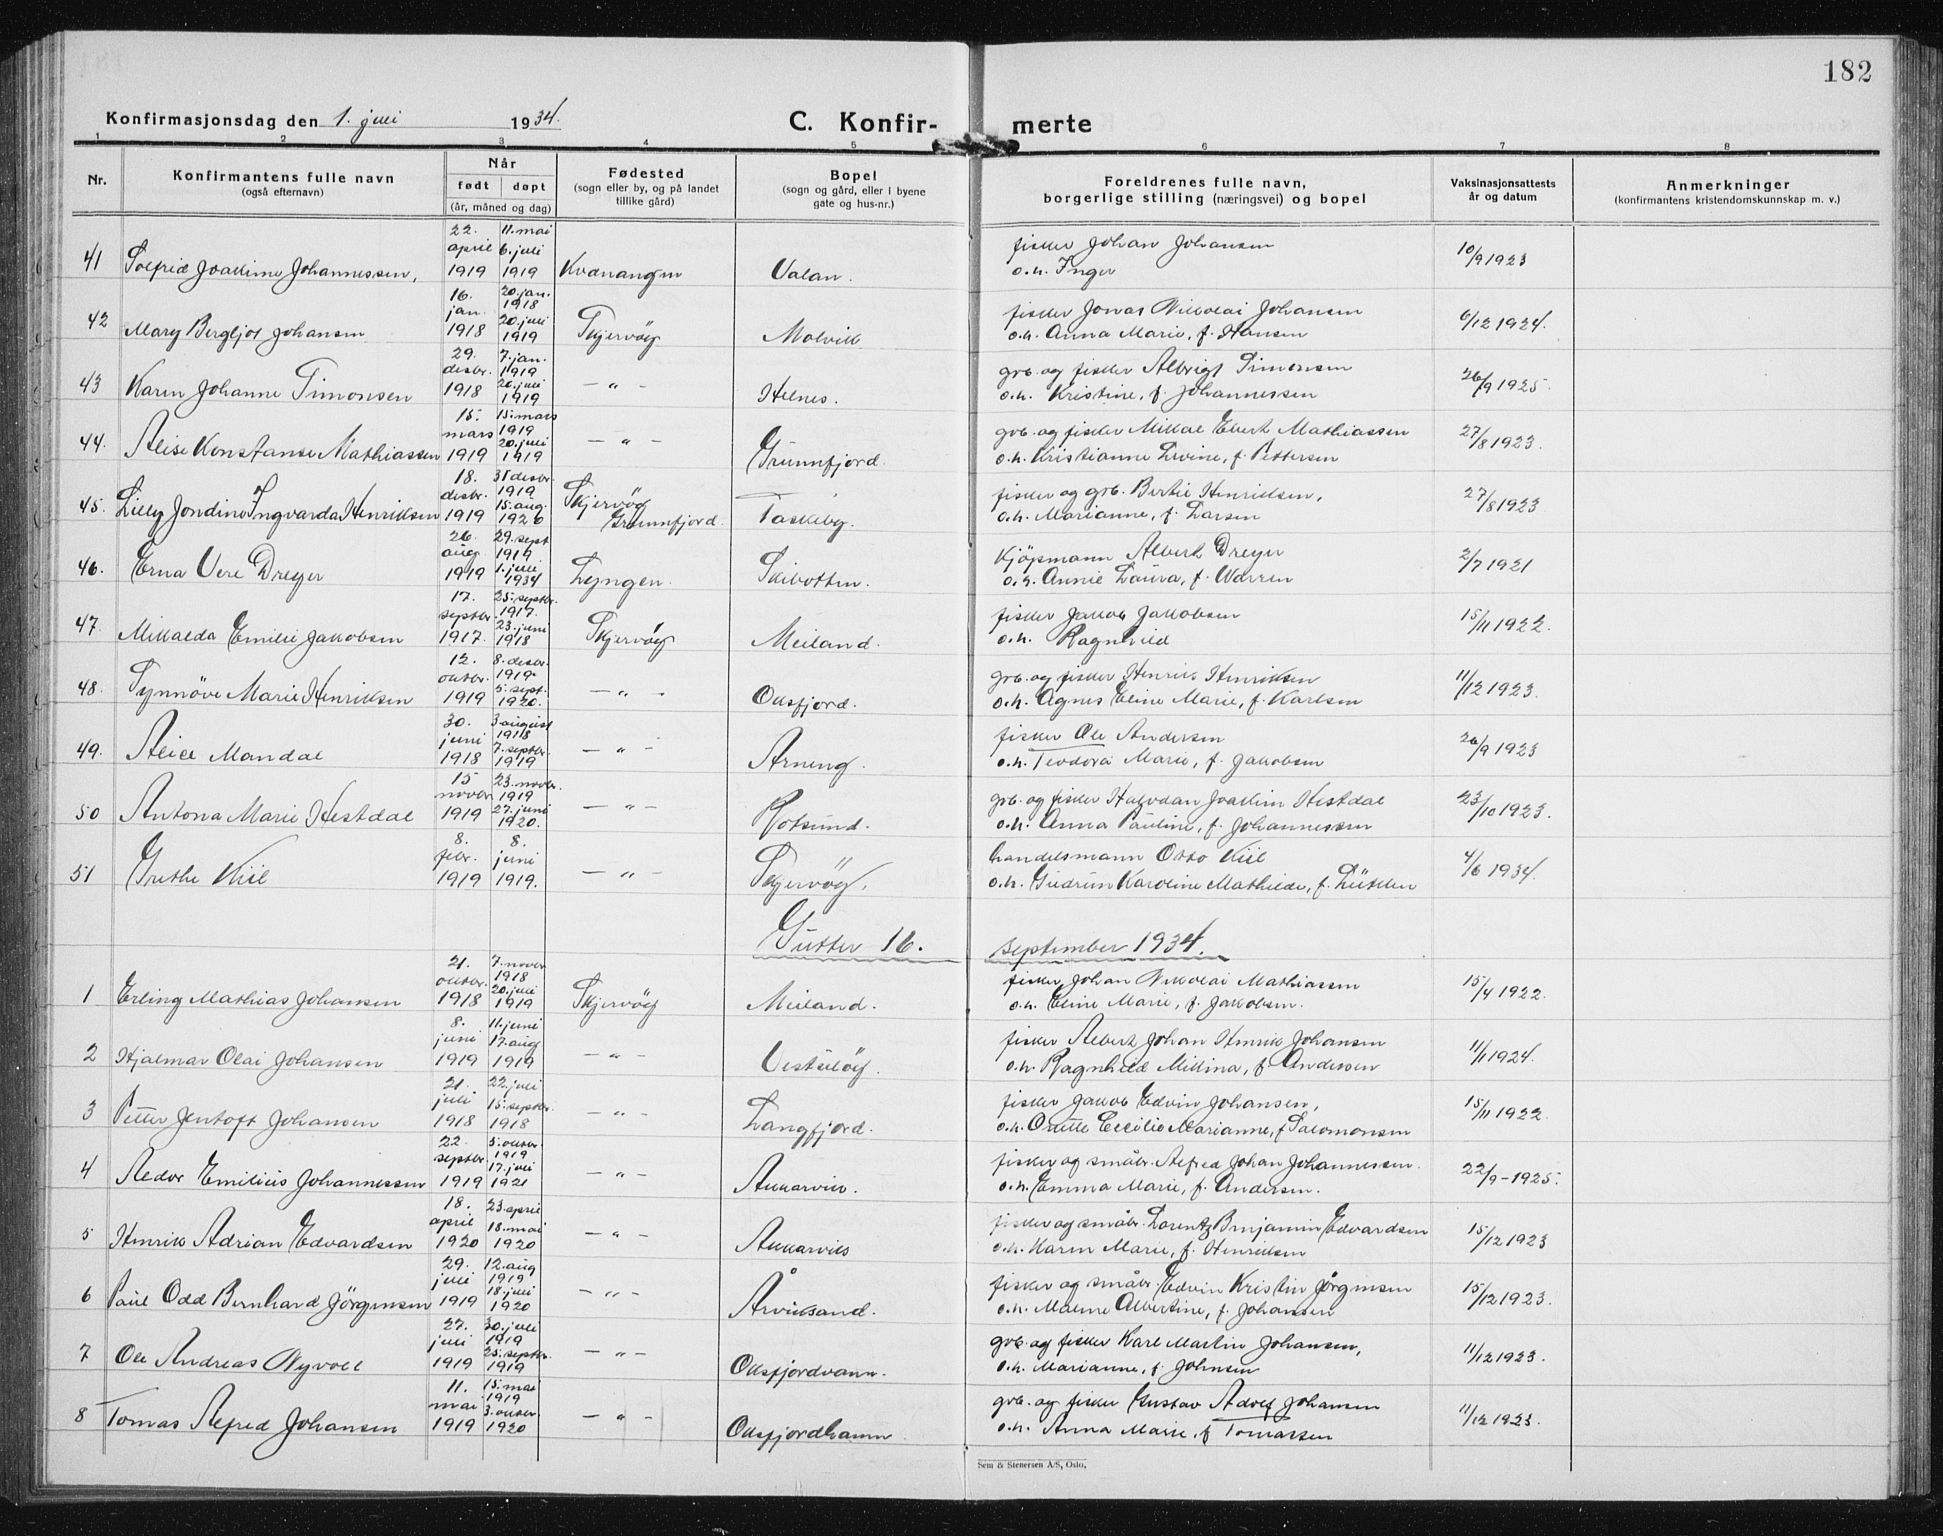 182
Konfirmasjonsdag den 1. juli 1934.
C. Konfir- merte
1 2 3 4 5 6 7 8
Nr. Konfirmantens fulle navn (også efternavn) Når født døpt (år, måned og dag) Fødested (sogn eller by, og på landet tillike gård) Bopel (sogn og gård, eller i byene gate og hus-nr.) Foreldrenes fulle navn, borgerlige stilling (næringsvei) og bopel Vaksinasjonsattests år og datum Anmerkninger (konfirmantens kristendomskunnskap m. v.)
41 Solfrid Joakime Johannessen, 22. april 1919 11. mai 6. juli 1919 Kvænangen Valan. fisker Johan Johansen o.h. Inger 10/9 1923
42 Mary Bergljot Johansen 16. jan. 1918 20. jan. 1918 20. juli 1919 Skjervöy Molvik fisker Jonas Nikolai Johansen o.h. Anna Marie, f. Hansen 6/12 1924.
43 Karen Johanne Simonsen 29. desbr. 1918 7. jan. 1919 20. juli 1919 — " — Helnes. grb. og fisker Albrigt Simonsen o.h. Kristine, f. Johannessen 26/9 1925.
44. Alise Konstanse Mathiassen 15. mars 1919 15. mars 1919 20. juli 1919 — " — Grunnfjord. grb. og fisker Mikal Ebert Mathiassen o.h. Kristianne Lovine, f. Pettersen 27/8 1923.
45. Lilly Jondine Ingvarda Henriksen 18. desbr. 1919 31 desbr. 1919 15. aug. 1920 Skjervöy Grunnfjord. Taskeby. fisker og grb. Bertil Henriksen, o.h. Marianne, f. Larsen 27/8 1923
46. Erna Vere Dreyer 26. aug. 1919 29. sept 1919. 1. juli 1934 Lyngen. Skibotten. Kjöpmann Albert Dreyer o.h. Annie Laura, f. Warren 2/7 1921
47. Mikalda Emilie Jakobsen 17. septbr. 1917. 25. septbr. 1917. 23. juni 1918 Skjervöy Meiland. fisker Jakob Jakobsen o.h. Ragnhild 15/11 1922.
48. Synnöve Marie Henriksen 12. oktbr. 1919 8. desbr. 1919 5. sept. 1920. — " — Oksfjord. grb. og fisker Henrik Henriksen o.h. Agnes Eline Marie, f. Karlsen 11/12 1923.
49. Alice Mandal 30. juni 1918 3 august 1918 7. septbr. 1919 — " — Arneng. fisker Ole Andersen o.h. Teodora Marie, f. Jakobsen 26/9 1923
50 Antona Marie Hestdal 15 novbr 1919 23. novbr. 1919 27. juni 1920. — " — Rotsund. grb. og fisker Halvdan Joakim Hestdal o.h. Anna Pauline, f. Johannessen 23/10 1923.
51 Grethe Kiil 8. febr. 1919 8. juni 1919. — " — Skjervöy. handelsmann Otto Kiil o.h. Gudrun Karoline Mathilde, f. Lükken 4/6 1934.
Gutter 16. september 1934.
1 Erling Mathias Johansen 21. oktbr. 1918 7. novbr 1918 20. juli 1919 Skjervöy Meiland. fisker Johan Nikolai Mathiassen o.h. Eline Marie, f. Jakobsen. 15/4 1922.
2 Hjalmar Olai Johansen 8. juni 1919 11. juni 17. aug 1919 — " — Vesteröy. fisker Albert Johan Henrik Johansen o.h. Ragnhild Mikkina, f. Andersen 11/1 1924.
3 Petter Jentoft Johansen 21. juli 1918 22. juli 15. septbr. 1918 — " — Langfjord. fisker Jakob Edvin Johansen, o.h. Orutte Cecilie Marianne, f. Salomonsen 15/11 1922.
4 Aedor Emilius Johannessen 22. septbr. 1919 5. oktbr. 1919 17. juli 1921 — " — Akkarvik. fisker og småbr. Alfred Johan Johannessen. o.h. Emma Marie, f. Andersen. 22/9 - 1925.
5 Henrik Adrian Edvardsen 18. april 1920 23. april 18. mai 1920 — " — Akkarvik fisker og småbr. Lorentz Benjamin Edvardsen o.h. Karen Marie, f. Henriksen 15/12 1923
6 Paul Odd Bernhard Jörgensen 29. juli 1919 12. aug 1919 18. juli 1920 — " — Årviksand. fisker og småbr. Edvin Kristin Jörgensen o.h. Malene Albertine, f. Johansen 15/12 1923.
7 Ole Andreas Nyvoll 27. juli 1919 30. juli 1919 25. septbr. 1919 — " — Oksfjordvann. grb. og fisker Karl Martin Johansen, o.h. Marianne, f. Johnsen 11/12 1923.
8 Tomas Alfred Johansen 11. mai 1919 15. mai 1919 3. oktbr 1920 — " — Oksfjordhamn grb. og fisker Gustav Adolf Johansen o.h. Anna Marie, f. Tomassen 11/12 1923.
Sem & Stenersen A/S, Oslo,